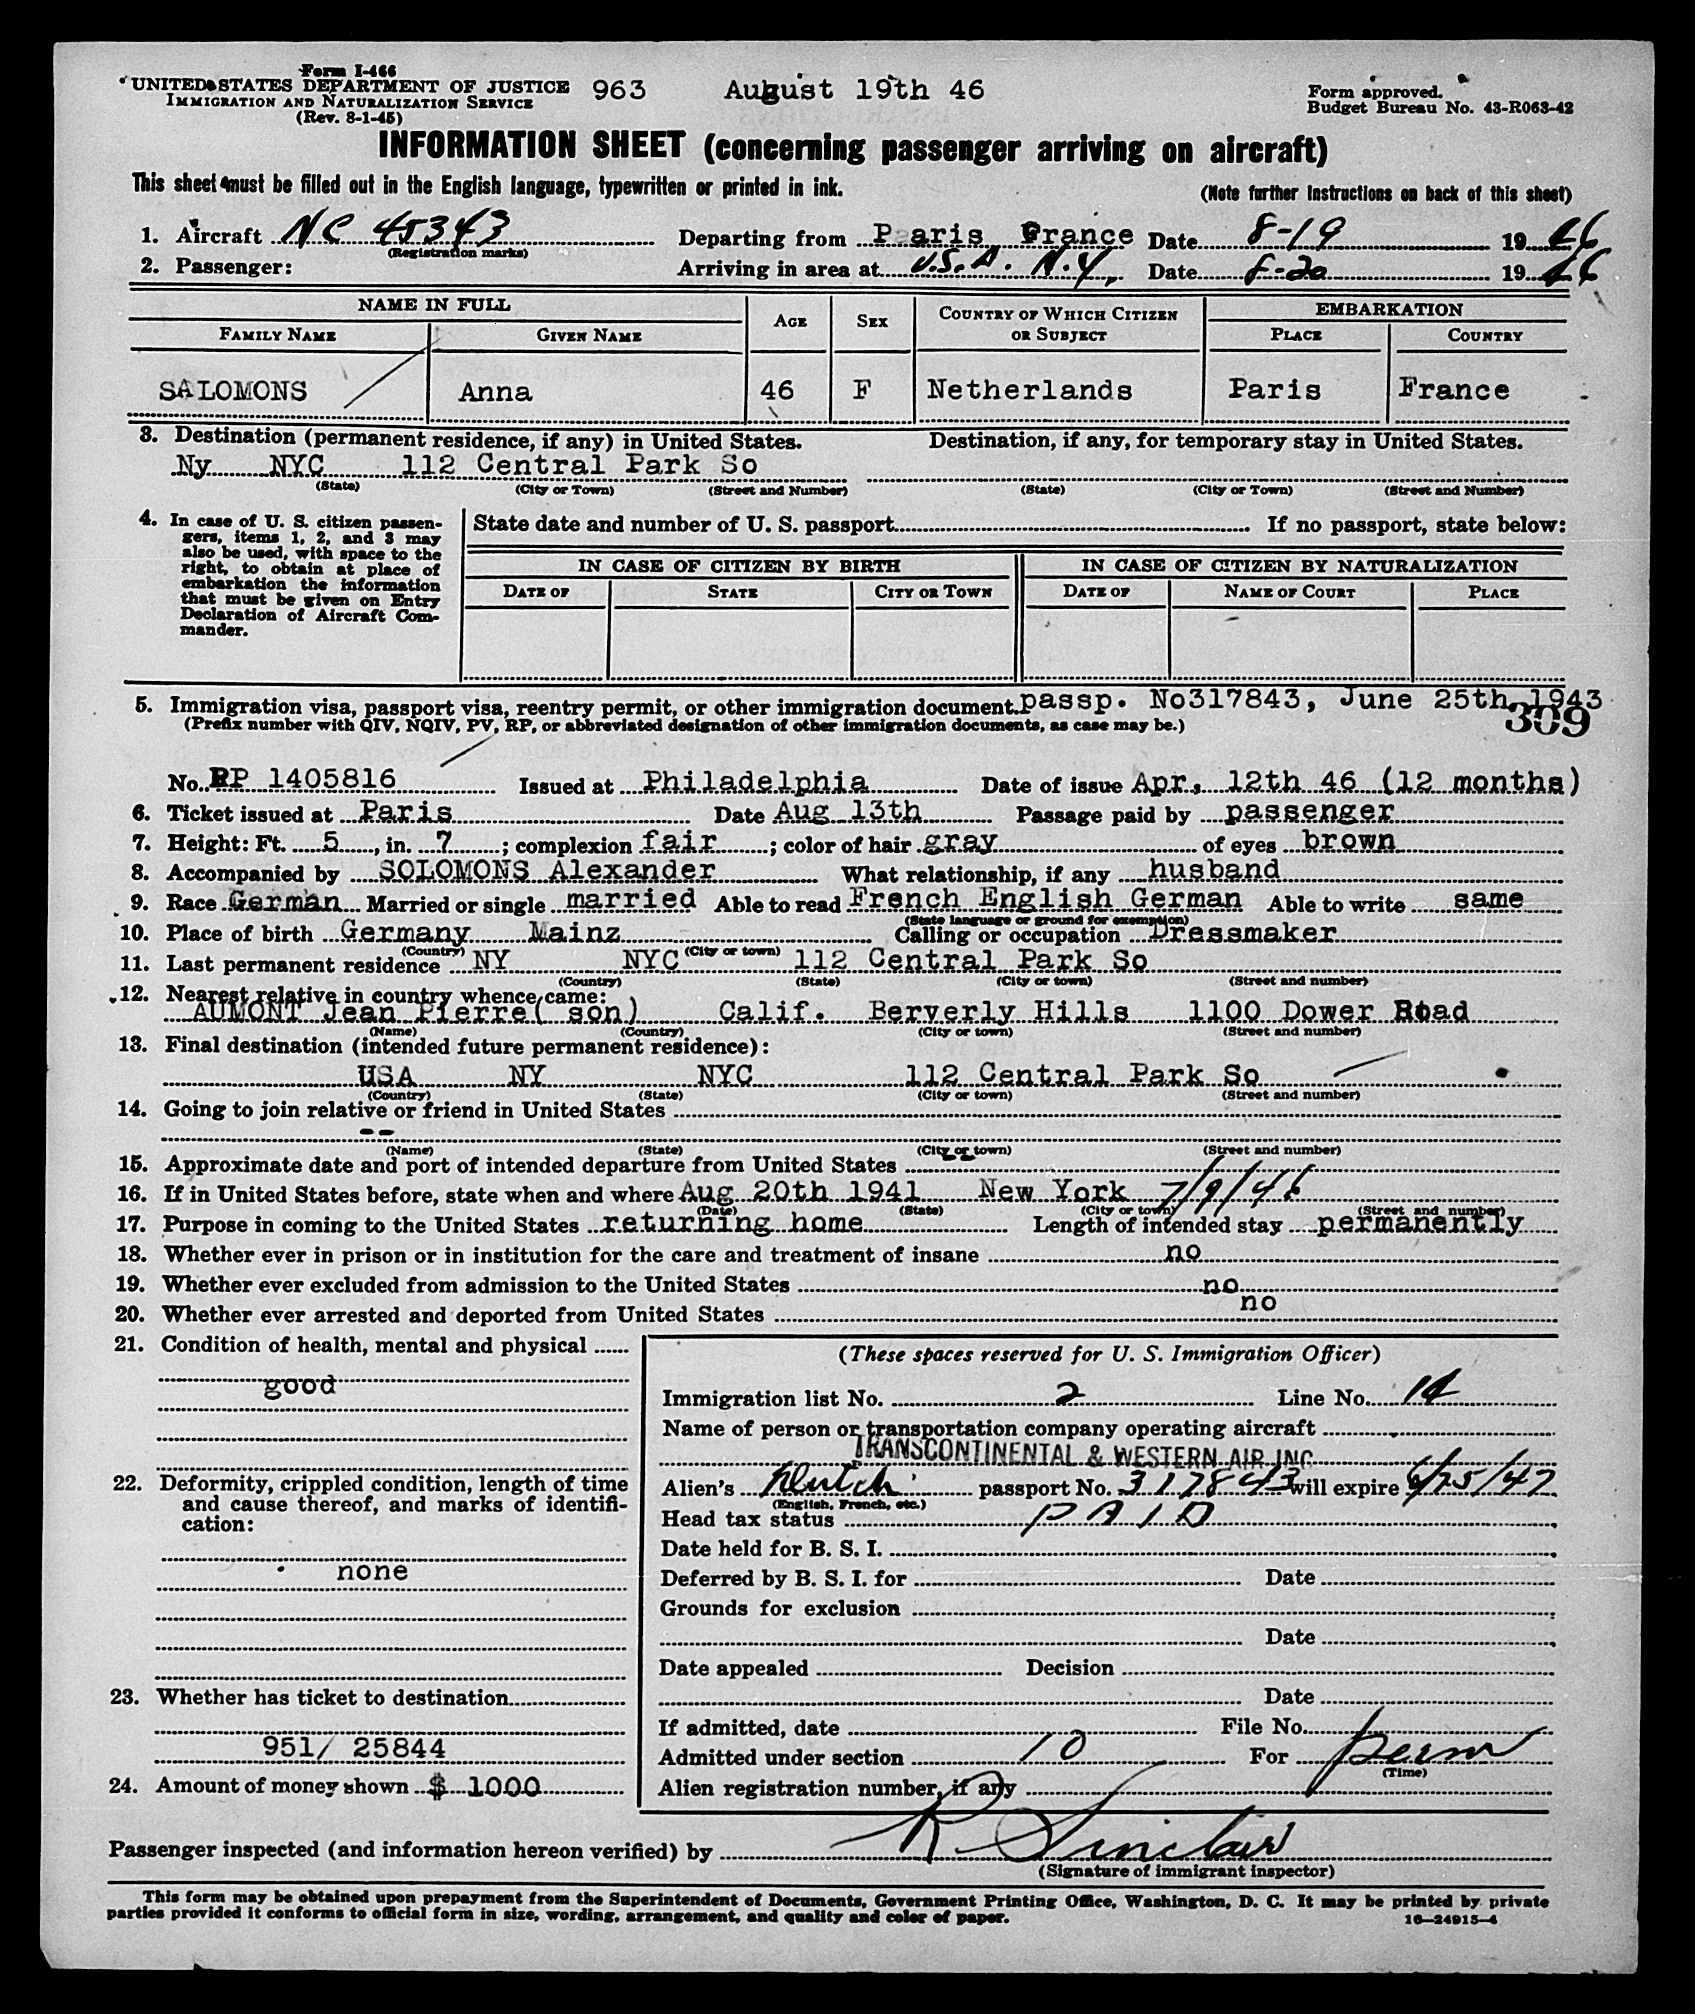 Form I-466
UNITED STATES DEPARTMENT OF JUSTICE 963 August 19th 46 Form approved.
IMMIGRATION AND NATURALIZATION SERVICE Budget Bureau No. 43-R063-42
(Rev. 8-1-45)
INFORMATION SHEET (concerning passenger arriving on aircraft)
This sheet must be filled out in the English language, typewritten or printed in ink. (Note further instructions on back of this sheet)
1. Aircraft NC 45343 Departing from Paris France Date 8-19 1946
(Registration marks)
2. Passenger: Arriving in area at U.S.A. N.Y. Date 8-20 1946
NAME IN FULL AGE SEX COUNTRY OF WHICH CITIZEN OR SUBJECT EMBARKATION
FAMILY NAME GIVEN NAME PLACE COUNTRY
SALOMONS Anna 46 F Netherlands Paris France
3. Destination (permanent residence, if any) in United States. Destination, if any, for temporary stay in United States.
Ny NYC 112 Central Park So
(State) (City or Town) (Street and Number) (State) (City or Town) (Street and Number)
4. In case of U. S. citizen passengers, items 1, 2, and 3 may also be used, with space to the right, to obtain at place of embarkation the information that must be given on Entry Declaration of Aircraft Commander.
State date and number of U. S. passport If no passport, state below:
IN CASE OF CITIZEN BY BIRTH IN CASE OF CITIZEN BY NATURALIZATION
DATE OF STATE CITY OR TOWN DATE OF NAME OF COURT PLACE
5. Immigration visa, passport visa, reentry permit, or other immigration document. passp. No317843, June 25th 1943
(Prefix number with QIV, NQIV, PV, RP, or abbreviated designation of other immigration documents, as case may be.) 309
No. RP 1405816 Issued at Philadelphia Date of issue Apr, 12th 46 (12 months)
6. Ticket issued at Paris Date Aug 13th Passage paid by passenger
7. Height: Ft. 5, in. 7; complexion fair; color of hair gray of eyes brown
8. Accompanied by SOLOMONS Alexander What relationship, if any husband
9. Race German Married or single married Able to read French English German Able to write same
(State language or ground for exemption)
10. Place of birth Germany Mainz Calling or occupation Dressmaker
(Country) (City or town)
11. Last permanent residence NY NYC 112 Central Park So
(Country) (State) (City or town) (Street and number)
12. Nearest relative in country whence came:
AUMONT Jean Pierre( son) Calif. Berverly Hills 1100 Dower Road
(Name) (Country) (City or town) (Street and number)
13. Final destination (intended future permanent residence):
USA NY NYC 112 Central Park So
(Country) (State) (City or town) (Street and number)
14. Going to join relative or friend in United States
--
(Name) (State) (City or town) (Street and number)
15. Approximate date and port of intended departure from United States --
16. If in United States before, state when and where Aug 20th 1941 New York 7/9/46
(Date) (State) (City or town) (Street and number)
17. Purpose in coming to the United States returning home Length of intended stay permanently
18. Whether ever in prison or in institution for the care and treatment of insane no
19. Whether ever excluded from admission to the United States no
20. Whether ever arrested and deported from United States no
21. Condition of health, mental and physical
good
22. Deformity, crippled condition, length of time and cause thereof, and marks of identification:
none
23. Whether has ticket to destination
951/ 25844
24. Amount of money shown $ 1000
(These spaces reserved for U. S. Immigration Officer)
Immigration list No. 2 Line No. 14
Name of person or transportation company operating aircraft
TRANSCONTINENTAL & WESTERN AIR INC
Alien's Dutch passport No. 317843 will expire 6/25/47
(English, French, etc.)
Head tax status PAID
Date held for B. S. I.
Deferred by B. S. I. for Date
Grounds for exclusion
Date
Date appealed Decision
Date
If admitted, date File No.
Admitted under section 10 For perm
(Time)
Alien registration number, if any
Passenger inspected (and information hereon verified) by R Sinclair
(Signature of immigrant inspector)
This form may be obtained upon prepayment from the Superintendent of Documents, Government Printing Office, Washington, D. C. It may be printed by private
parties provided it conforms to official form in size, wording, arrangement, and quality and color of paper. 16—24915-4